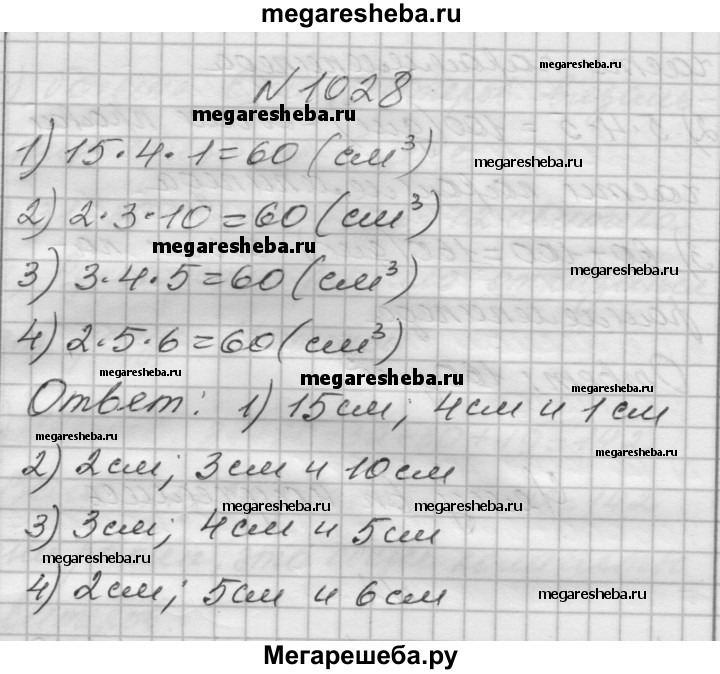 megaresheba.ru
megaresheba.ru
N 1028
megaresheba.ru
1) 15·4·1=60 (см³)
megaresheba.ru
2) 2·3·10=60 (см³)
megaresheba.ru
3) 3·4·5=60 (см³)
megaresheba.ru
4) 2·5·6=60 (см³)
megaresheba.ru
megaresheba.ru
megaresheba.ru
Ответ: 1) 15см; 4см и 1см
megaresheba.ru
megaresheba.ru
2) 2см; 3см и 10см
megaresheba.ru
megaresheba.ru
3) 3см; 4см и 5см
megaresheba.ru
4) 2см; 5см и 6см
megaresheba.ru
Мегарешеба.ру